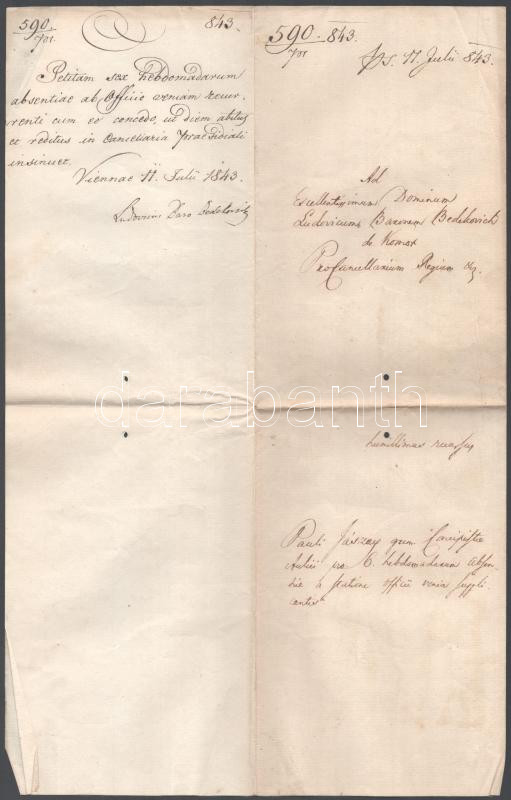 590. 843.
Pr.
Petitam sex hebdomadarum
absentiae ab Officio veniam recur-
renti cum eo concedo, ut diem abitus
et reditus in Cancellaria Praesidiali
insinuet.
Viennae 11 Julii 1843.
Ludovicus Baro Bedekovits
590. 843.
Pr.
Ps. 11 Julii 843.
Ad
Excellentissimum Dominum
Ludovicum Baronem Bedekovich
de Komor
ProCancellarium Regium
darabanth
humillimus recursus
Pauli Jászay Concipistae
Aulici pro 6. hebdomadarum absen-
tiae a statione officii venia suppli
cantis